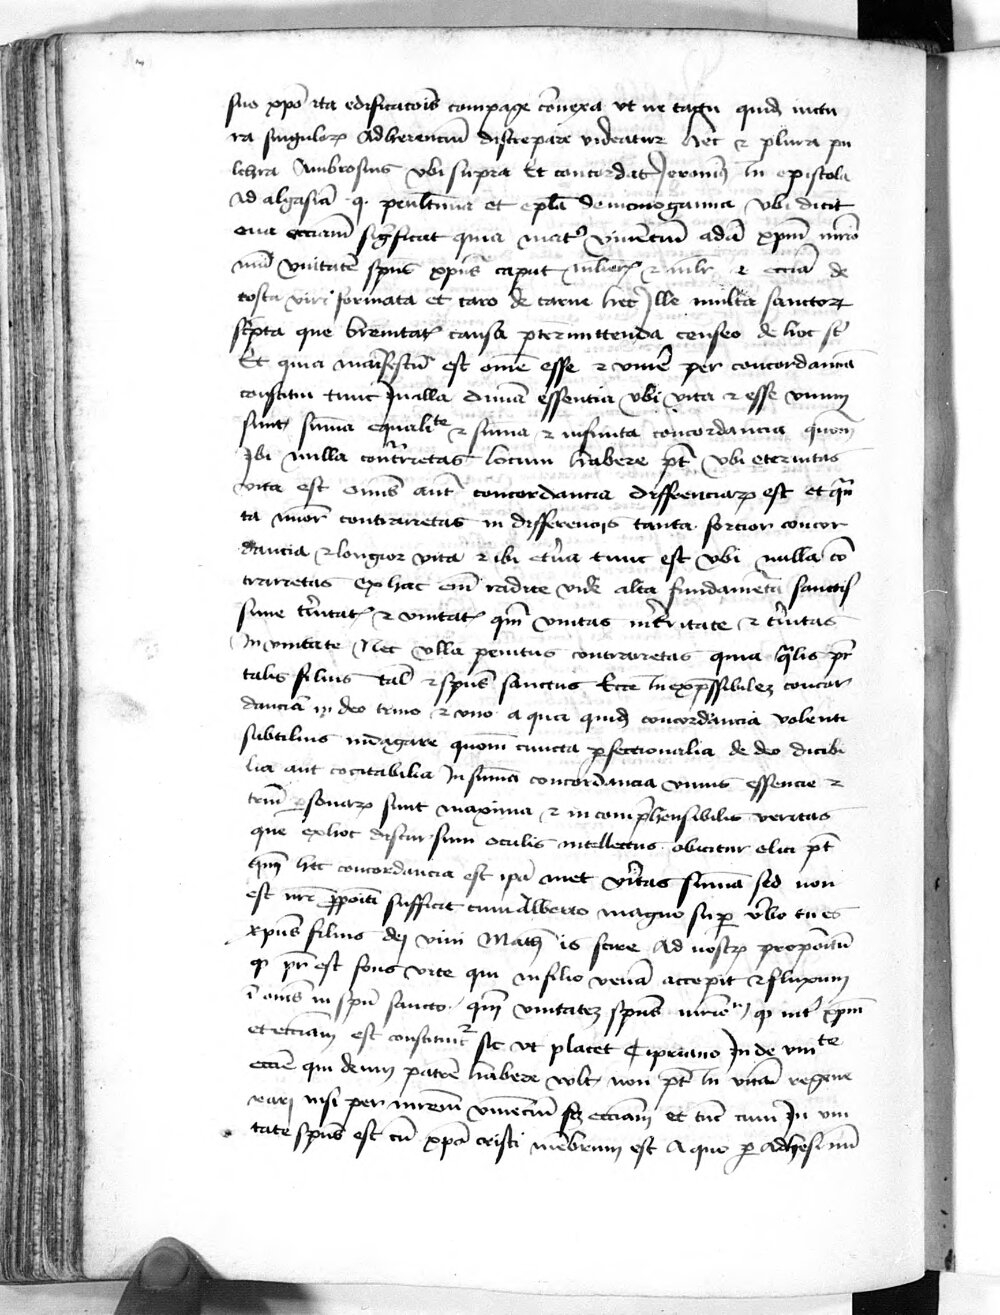 suo xpō ita edificacōis compage cōnexa ut ne tagn quidē iunctu
ra singulorꝝ adherenciū discrepare videatur hec et plura pu
lchra Ambrosius ubi supra Et concordat Jeronimꝰ in epistola
ad algasiā q. penultima et epl̄a de monogamia ubi dicit
eua ecciam significat quia mat̄ viuencium adā xpm̄
unitatē spūs xpūs caput mulier et ecciā de
costa viri formata et caro de carne hec Ille multa sanctorꝝ
scripta que breuitatꝭ causa pretermittenda censeo de hoc st̄
Et quia manifestū est omē esse et viuere per concordanciā
constitui tunc In alla diuina essentia ubi vita et esse unum
sunt suma equalite et suma et infinita concordancia quom̄
Ibi nulla contrarietas locum habere pt̄ ubi eternitas
vita est omīs aut concordancia differenciarꝝ est et quan
ta minor contrarietas in differencijs tanta forcior concor
dancia et longior vita et ibi et'na tunc est ubi nulla con
trarietas ex hac em̄ radice vide alta fundamenta sanctis
sime trinitatꝭ et unitatꝭ qm̄ unitas in trinitate et trinitas
In unitate Nec ulla penitus contrarietas quia qualis pr̄
talis filius tal' et spūs sanctus Ecce inexpressibilez concor
danciā in deo trino et uno a qua quidē concordancia volenti
subtilius indagare quom̄ cuncta perfectionalia de deo dicibi
lia aut cogitabilia In suma concordancia unius essencie et
trium personarꝝ sunt maxima et incomprehensibilis veritas
que ex hoc discursum oculis intellectus obicitur elici pt̄
qm̄ hec concordancia est ipa met veritas suma sed non
est nr̄i propoīti sufficit cum Alberto magno super verbo tu es
xpūs filius dei viui Math is scire ad nostrꝝ propoītū
qꝫ pr̄ est fons vite qui in filio venā accepit et fluxum
ī omīs in spū sancto qm̄ unitatez spūs qꝫ int' xpm̄
et ecciam est constituit' sic ut placet Cipriano In de unite
eccie qui deum patrē habere vult non pt̄ in vitā regene
rari nisi per mrem̄ viuenciū scꝫ ecciam et tūc cum In uni
tate spūs est cū xpo cristi membrum est A quo per adhesiuū